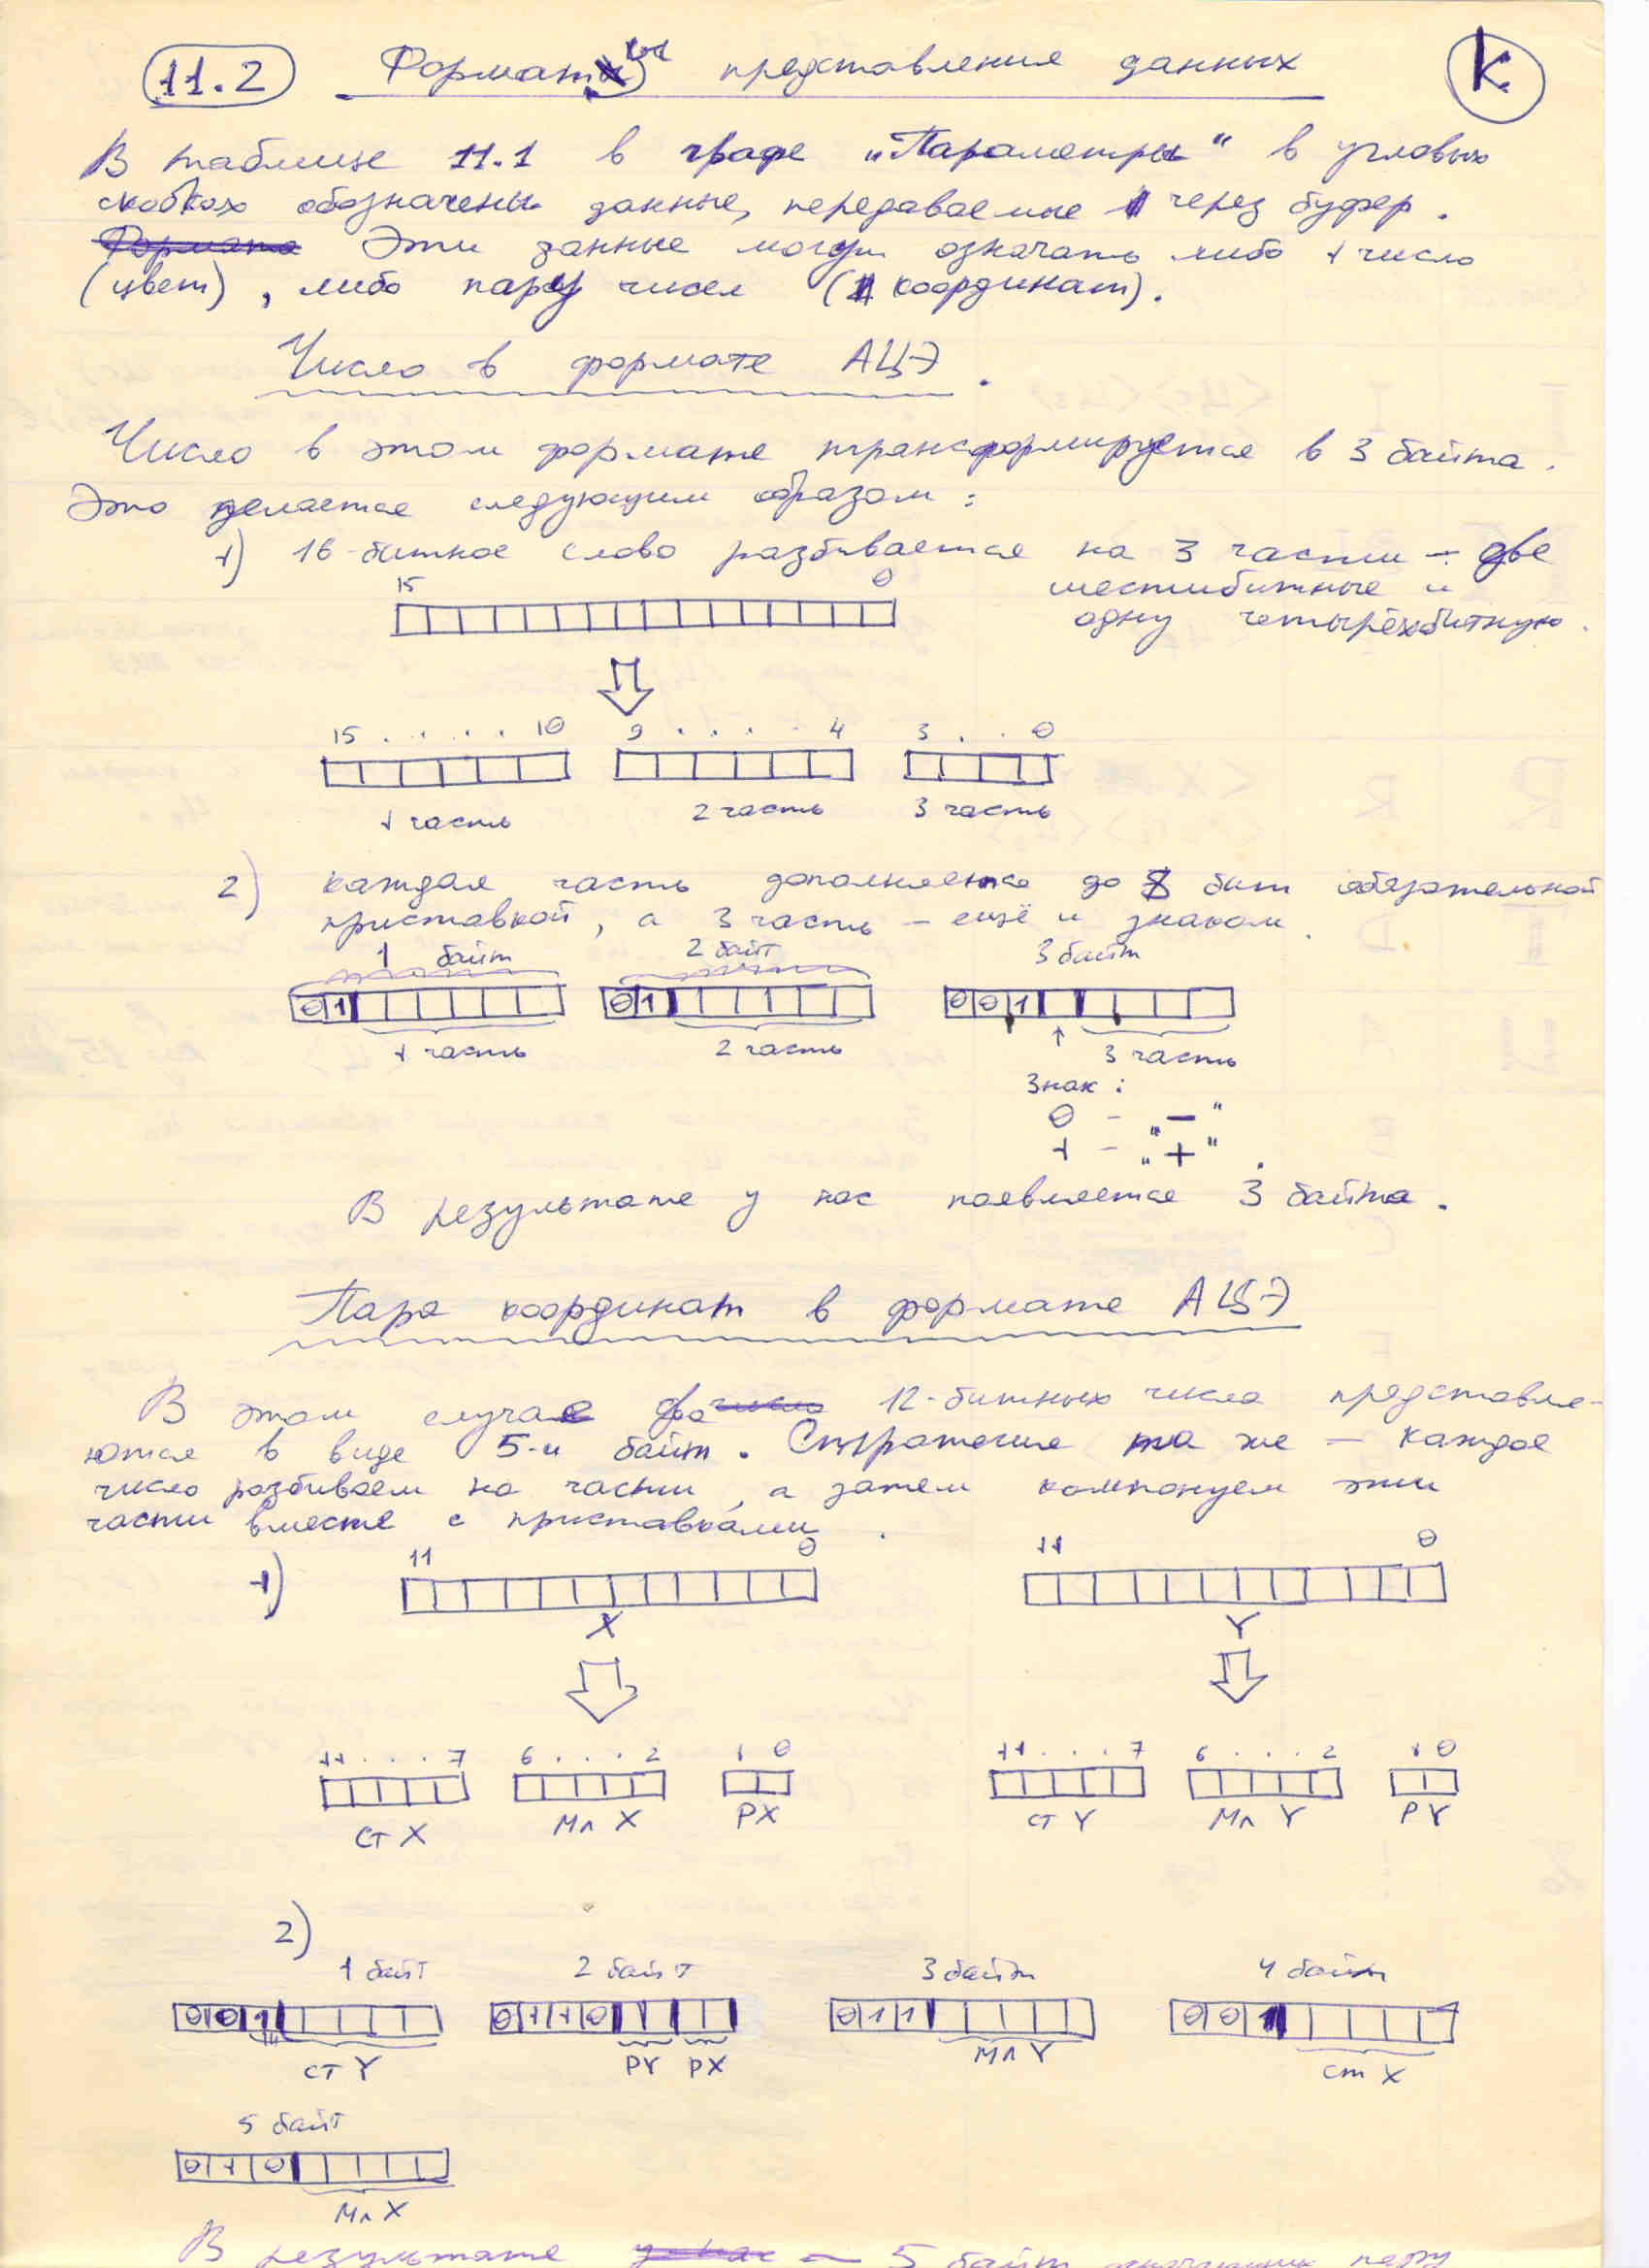 11.2 Форматы представления данных К
В таблице 11.1 в графе „Параметры“ в угловых
скобках обозначены данные, передаваемые через буфер.
Эти данные могут означать либо 1 число
(цвет), либо пару чисел (координат).
Число в формате АЦЭ.
Число в этом формате трансформируется в 3 байта.
Это делается следующим образом:
1) 16-битное слово разбивается на 3 части - две
шестибитные и
одну четырёхбитную.
15 0
15 . . . . 10 9 . . . . 4 3 . . 0
1 часть 2 часть 3 часть
2) каждая часть дополняется до 8 бит обязательной
приставкой, а 3 часть - ещё и знаком.
1 байт 2 байт 3 байт
0 1 0 1 0 0 1
1 часть 2 часть 3 часть
Знак:
0 - „-“
1 - „+“.
В результате у нас появляется 3 байта.
Пара координат в формате АЦЭ
В этом случае два 12-битных числа представля-
ются в виде 5-и байт. Стратегия та же - каждое
число разбиваем на части, а затем компонуем эти
части вместе с приставками.
1) 11 0 11 0
X Y
11 . . . 7 6 . . . 2 1 0 11 . . . 7 6 . . . 2 1 0
Ст X Мл X РX Ст Y Мл Y РY
2)
1 байт 2 байт 3 байт 4 байт
0 0 1 0 1 1 0 0 1 1 0 0 1
Ст Y РY РX Мл Y Ст X
5 байт
0 1 0
Мл X
В результате - 5 байт пару